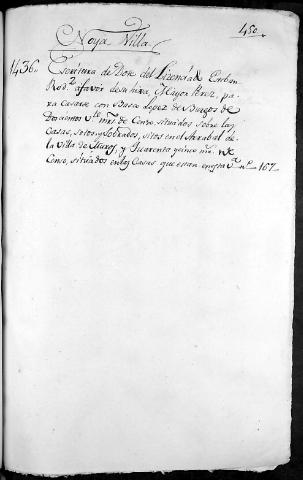 450.
Noya Villa
1436. Escritura de Dote del Licenciado Esteban
Rod.z a favor de su hixa, Mayor Perez, pa-
ra Casarse con Basco Lopez de Burgos de
Doscientos mrs. de Censo, situados sobre las
Casas, Sotos, y Sobrados, sitos en el Arrabal de
la Villa de Muros, y Quarenta y cinco ms. de
Censo, situados en las Casas que estan en esta V.a n.o 167